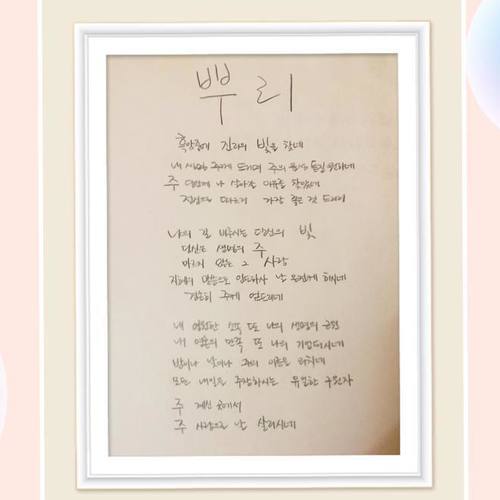 뿌리
흑암중에 진리의 빛을 찾네
내 사랑 주께 드리며 주의 음성 듣길 원하네
주 안에 나 살아갈 이유를 찾았네
진심으로 따르리 가장 좋은 것 드리리
나의 길 비추시는 당신의 빛
당신은 생명의 주
마르지 않는 그 사랑
지혜의 말씀으로 인도하사 날 온전케 하시네
겸손히 주께 엎드리네
내 영원한 소망 또 나의 생명의 근원
내 영혼의 만족 또 나의 기업되시네
밤이나 낮이나 주의 이름을 외치네
모든 내일을 주관하시는 유일한 구원자
주 계신 곳에서
주 사랑으로 날 살리시네